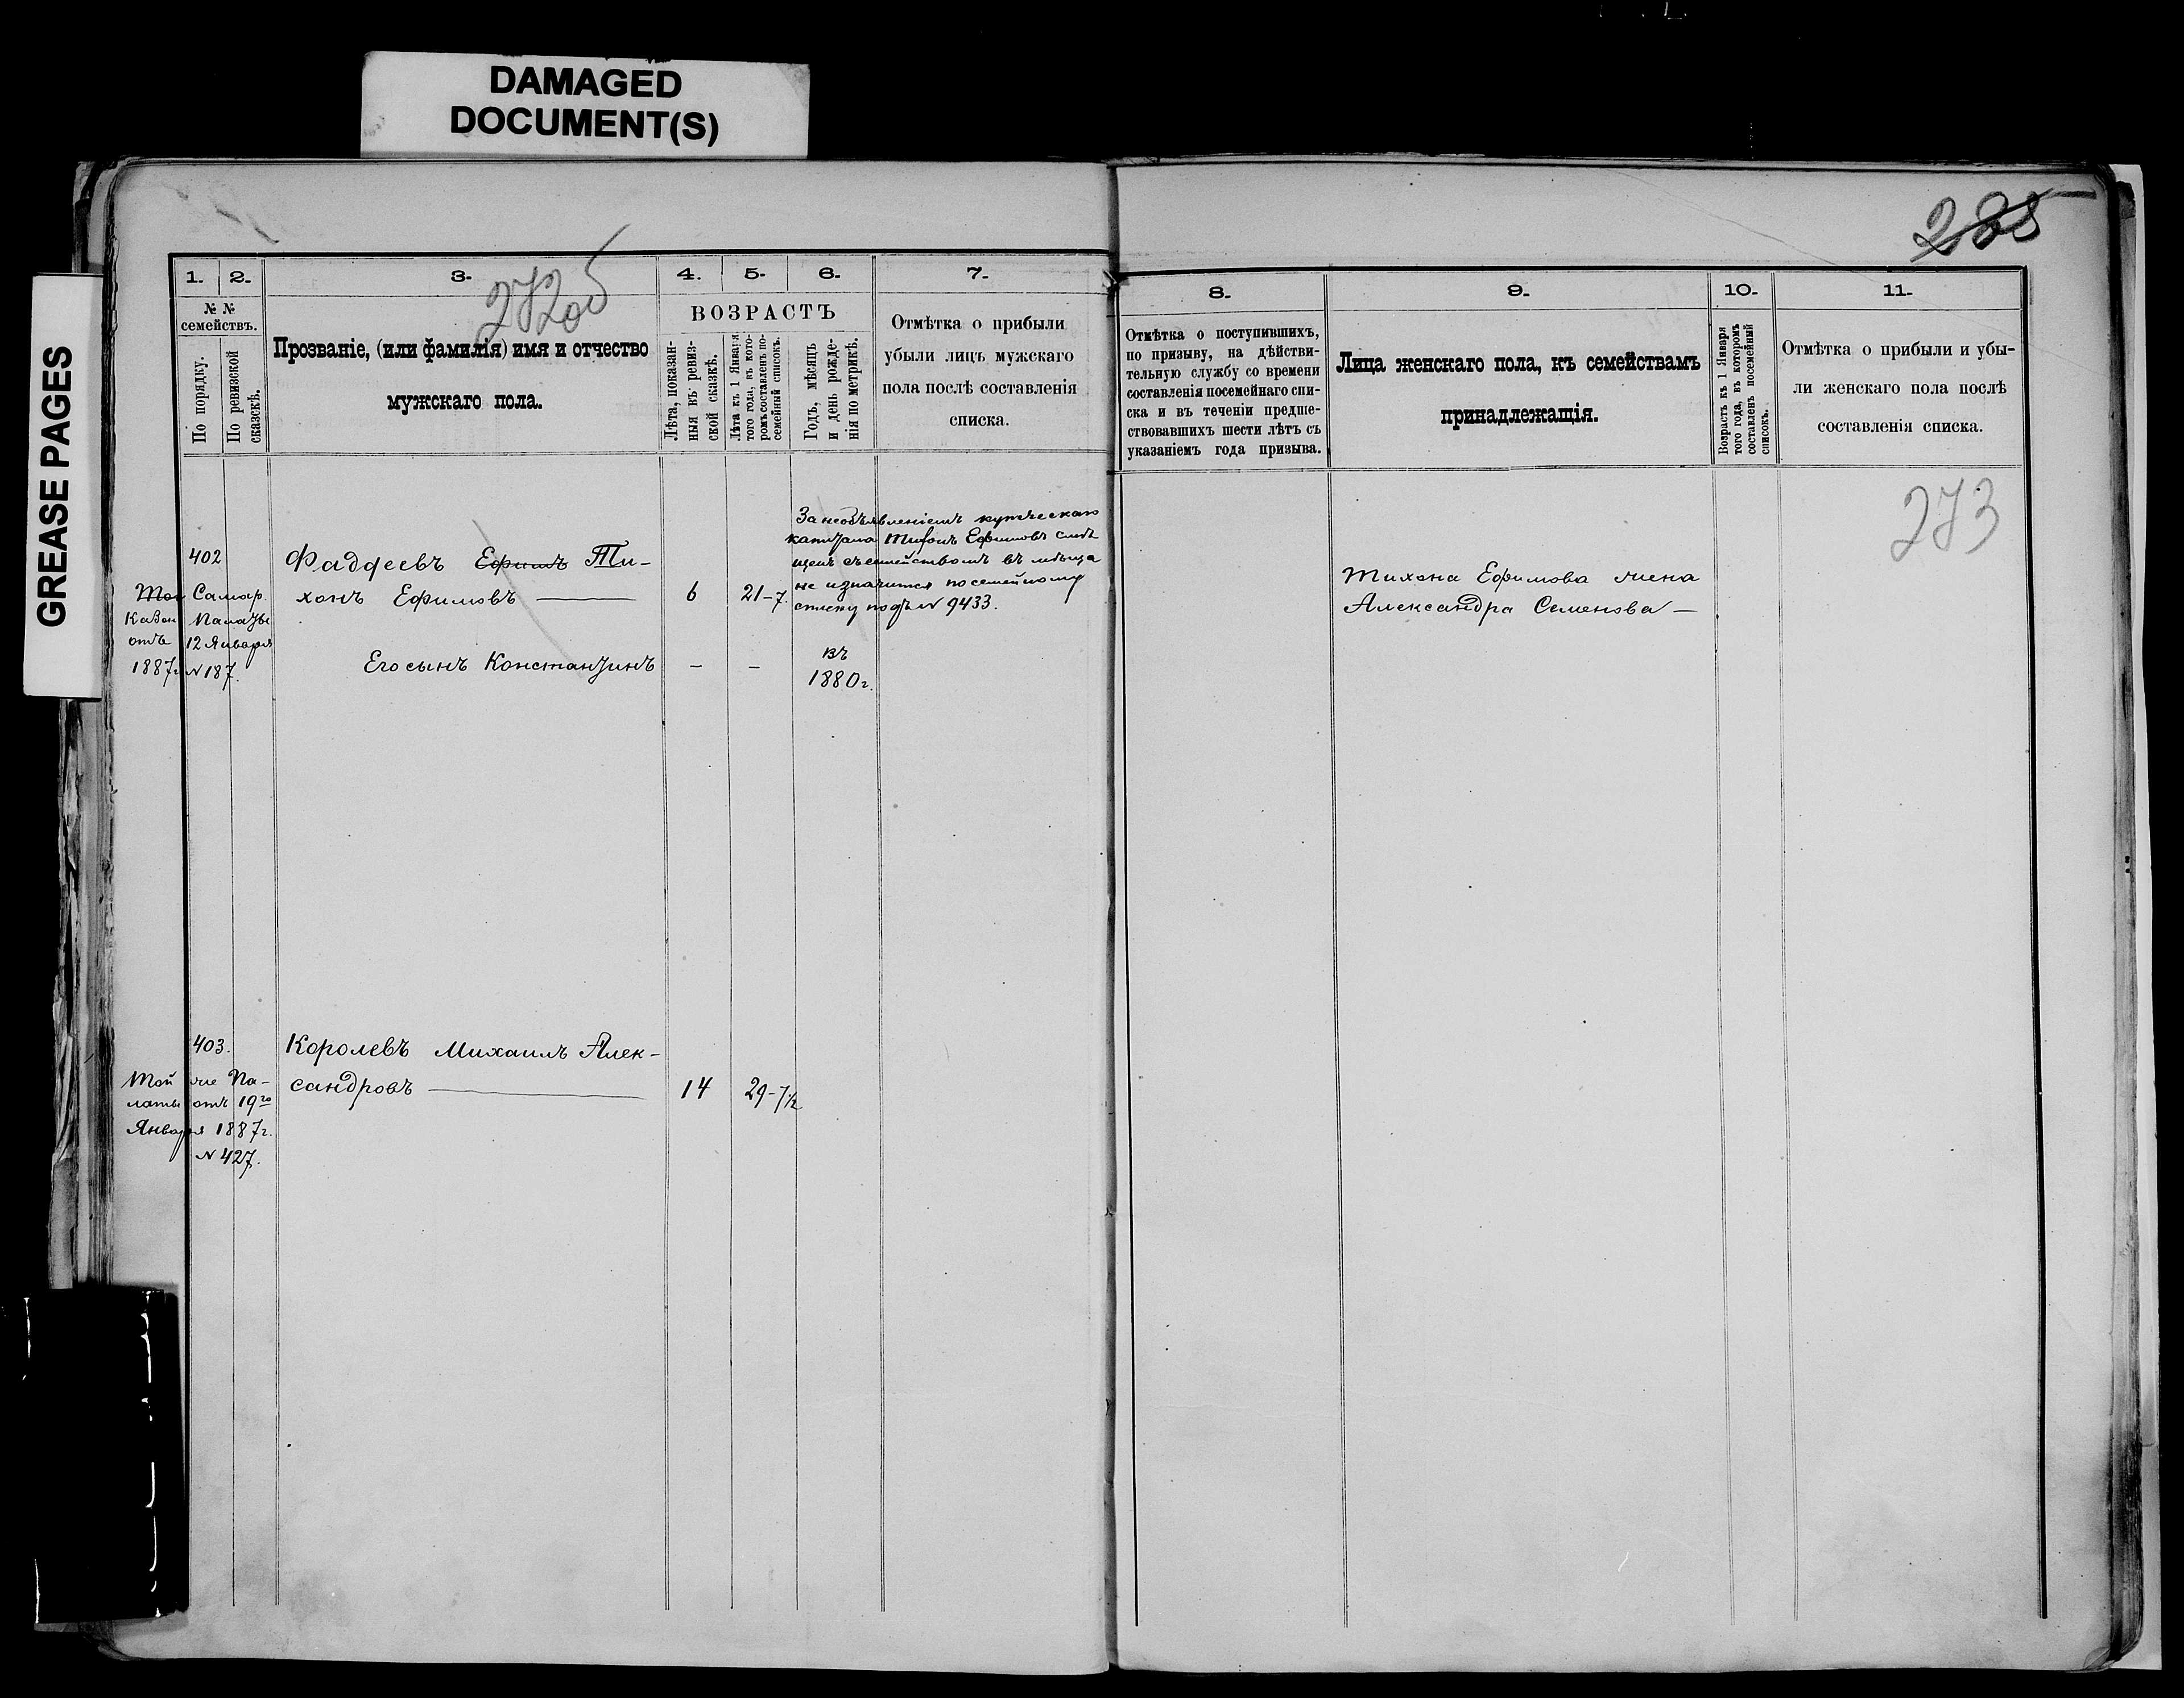 DAMAGED
DOCUMENT(S)
GREASE PAGES
1.
2.
3.
4.
5.
6.
7.
272об
№ №
семействъ.
По порядку.
По ревизской
сказкѣ.
Прозваніе, (или фамилія) имя и отчество
мужскаго пола.
ВОЗРАСТЪ
Лѣта, показан-
ныя въ ревиз-
ской сказкѣ.
Лѣта къ 1 Января
того года, въ кото-
ромъ составленъ по-
семейный списокъ.
Годъ, мѣсяцъ
и день рожде-
нія по метрикѣ.
Отмѣтка о прибыли
убыли лицъ мужскаго
пола послѣ составленія
списка.
402
Самар.
Казен Палаты
отъ 12 Января
1887г № 187.
Фаддеевъ Ефимъ Ти-
хонъ Ефимовъ
6
21-7.
За необъявленіемъ купческаго
капитала Ефимовъ
семействомъ въ мѣща
не посемейному
списку подъ № 9433.
Его сынъ Константинъ
-
-
въ
1880г.
403.
Той же Па-
латы отъ 19го
Января 1887г.
№ 427.
Королевъ Михаилъ Алек-
сандровъ
14
29-7½
285
8.
9.
10.
11.
Отмѣтка о поступившихъ,
по призыву, на дѣйстви-
тельную службу со времени
составленія посемейнаго спи-
ска и въ теченіи предше-
ствовавшихъ шести лѣтъ съ
указаніемъ года призыва.
Лица женскаго пола, къ семействамъ
принадлежащія.
Возрастъ къ 1 Января
того года, въ которомъ
составленъ посемейный
списокъ.
Отмѣтка о прибыли и убы-
ли женскаго пола послѣ
составленія списка.
273
Тихона Ефимова жена
Александра Семенова —